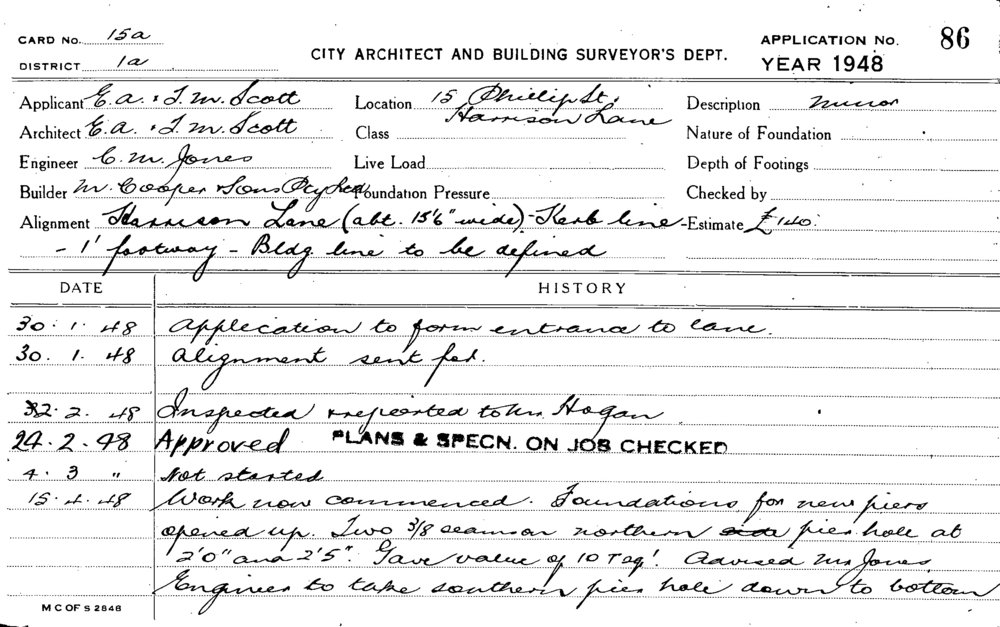 CARD No. 15a
CITY ARCHITECT AND BUILDING SURVEYOR'S DEPT.
APPLICATION No. 86
DISTRICT 1a
YEAR 1948
Applicant E.A. & T.M. Scott Location 15 Phillip St. Description minor
Harrison Lane
Architect E.A. & T.M. Scott Class Nature of Foundation
Engineer C.M. Jones Live Load Depth of Footings
Builder M. Cooper & Sons Pty Ltd Foundation Pressure Checked by
Alignment Harrison Lane (abt. 15'6" wide) - Kerb line - Estimate £140.
- 1' footway - Bldg. line to be defined
DATE HISTORY
30.1.48 Application to form entrance to lane.
30.1.48 Alignment sent for.
2.2.48 Inspected & reported to Mr. Hogan
24.2.48 Approved PLANS & SPECN. ON JOB CHECKED
4.3 " Not started
15.4.48 Work now commenced. Foundations for new piers
opened up. Two 3/8 seams on northern side pier hole at
2'0" and 2'5". Gave value of 10 T sq'. Advised Mr Jones
Engineer to take southern pier hole down to bottom
M C OF S 2848